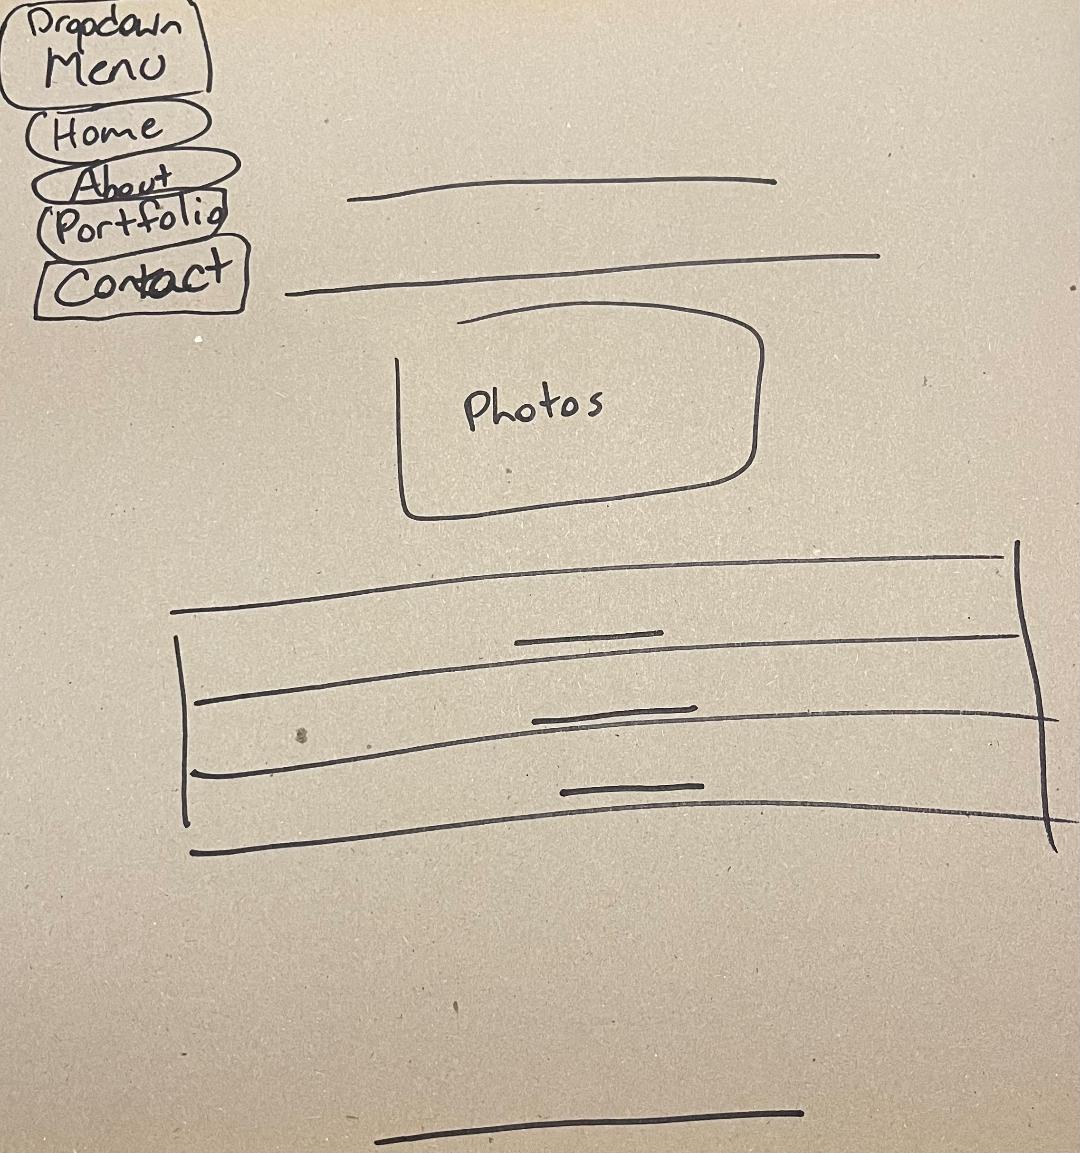 Dropdown
Menu
Home
About
Portfolio
Contact
Photos